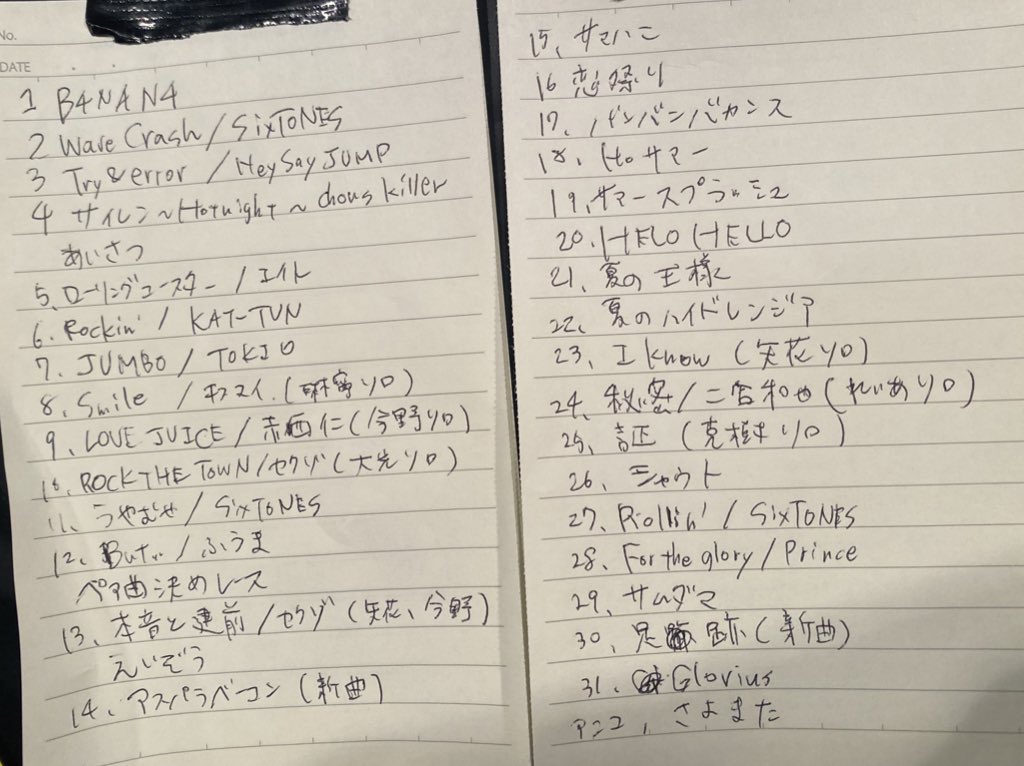 No.
DATE
1 B4NAN4
2 Wave Crash / SixTONES
3 Try & error / Hey Say JUMP
4 サイレン ~ Hotnight ~ chous killer
あいさつ
5、ローリングコースター / エイト
6. Rockin' / KAT-TUN
7. JUMBO / TOKIO
8. Smile / キスマイ (ソロ)
9. LOVE JUICE / 赤西仁 (今野ソロ)
10. ROCK THE TOWN / セクゾ (大光ソロ)
11、うやむや / SixTONES
12、But... / ふうま
ペア曲決めレース
13、本音と建前 / セクゾ (矢花、今野)
えいぞう
14、アスパラベーコン (新曲)
15、サマハニ
16 恋祭り
17、バンバンバカンス
18、Hoサマー
19、サマースプラッシュ
20、HELO HELLO
21、夏の王様
22、夏のハイドレンジア
23、I know (矢花ソロ)
24、秘密 / 二宮和也 (れいあソロ)
25、証 (克樹ソロ)
26、シャウト
27、Rollin' / SixTONES
28、For the glory / Prince
29、サムダマ
30、足跡 (新曲)
31、Glorius
アンコ、さよまた